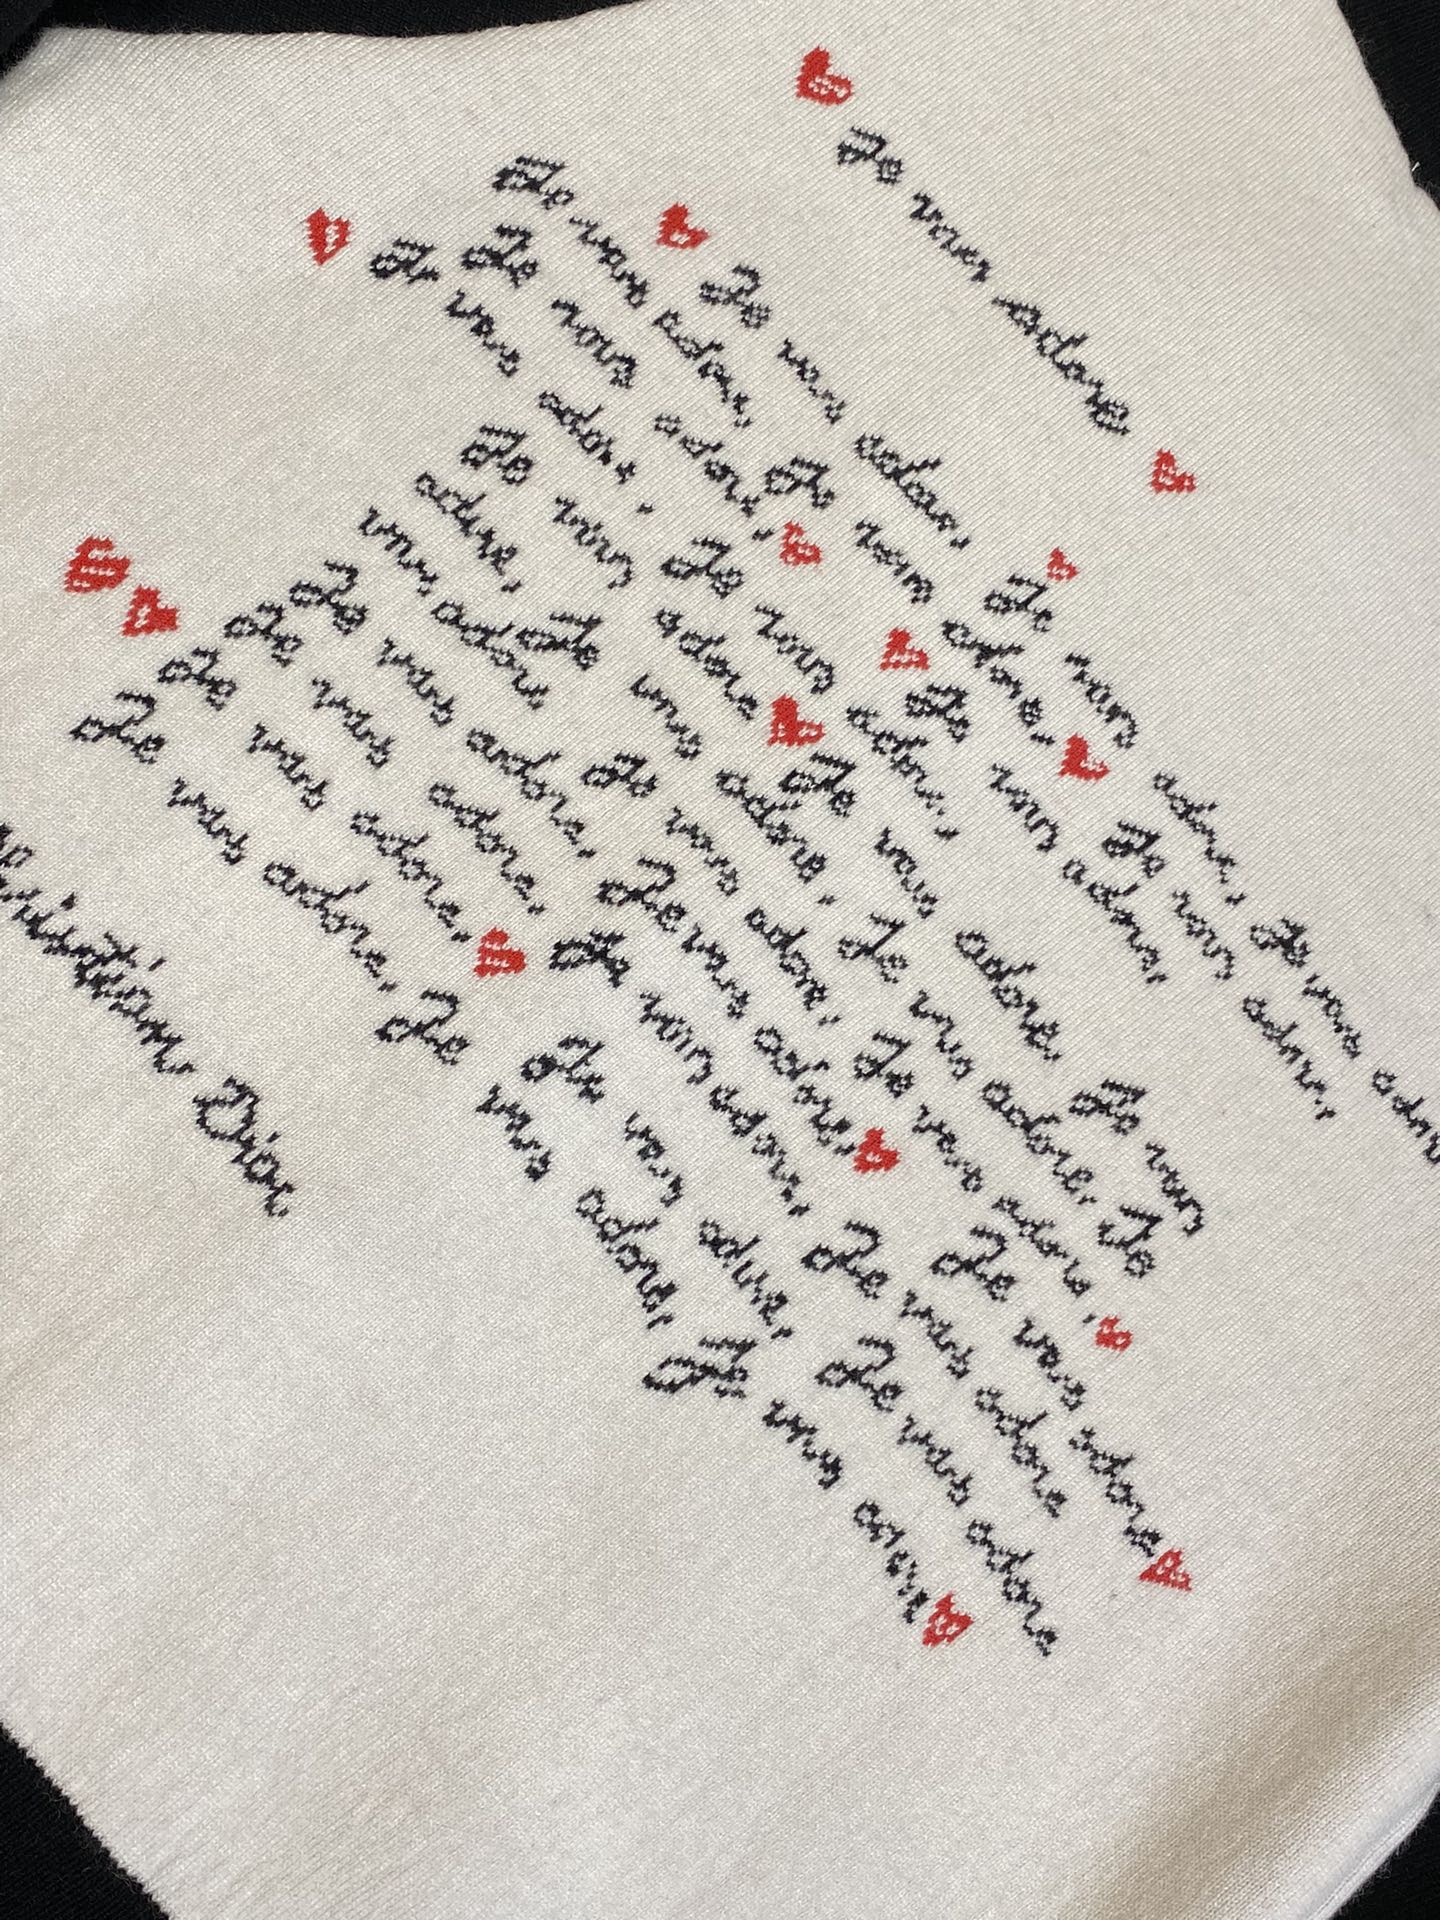 Je vous adore
Je vous adore,
Je vous adore,
Je vous adore,
Je vous adore,
Je vous adore,
Je vous adore,
Je vous adore,
Je vous adore
adore,
vous adore
Je vous adore,
Je vous adore,
Je vous adore,
Je vous adore,
Je vous adore,
Je vous adore,
Je vous adore,
Je vous adore,
Je vous adore,
Je vous adore,
Je vous adore,
Je vous adore,
Je vous adore,
Je vous adore,
Je vous
Je
Je vous adore,
Je vous adore,
Je vous adore,
Je vous adore
Je vous adore
Je vous adore
Je vous adore
Christian Dior